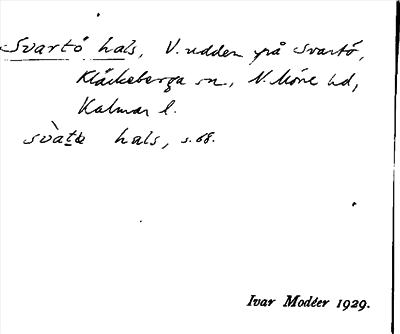 Svartö hals, V. udden på Svartö,
Kläckeberga sn., N. Möre hd,
Kalmar l.
svàtɵ hals, s. 68.
Ivar Modéer 1929.